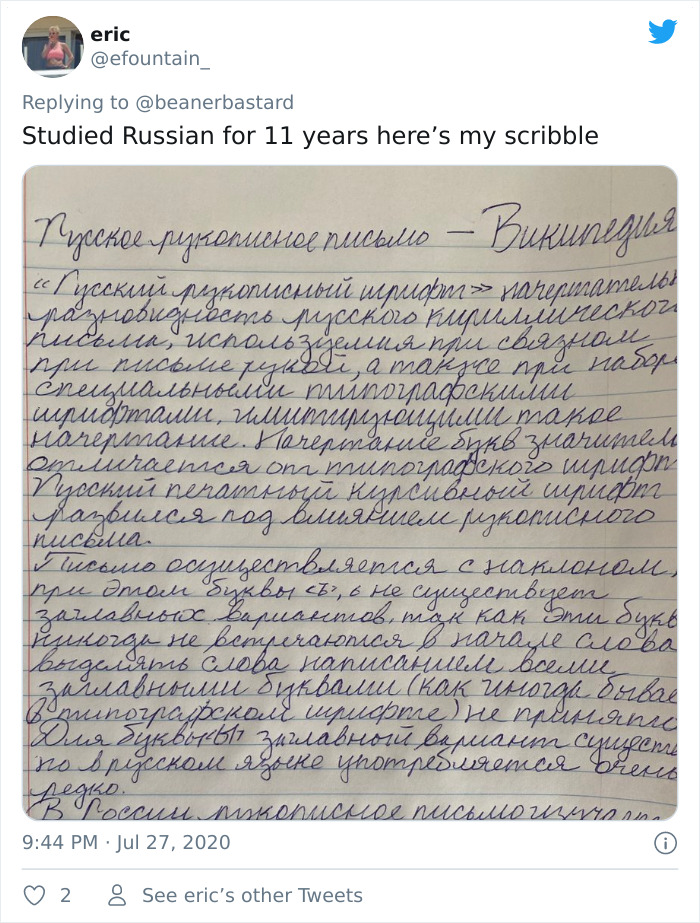 eric
@efountain_
Replying to @beanerbastard
Studied Russian for 11 years here’s my scribble
Русское рукописное письмо — Википедия
“Русский рукописный шрифт” начертательн
разновидность русского кириллического
письма, используемая при связном
при письме рукой, а также при набор
специальными типографскими
шрифтами, имитирующими такое
начертание. Начертание букв значител
отличается от типографского шрифт
Русский печатный курсивный шрифт
развился под влиянием рукописного
письма.
Письмо осуществляется с наклоном,
при этом буквы <ъ>, ь не существует
заглавных вариантов, так как эти букв
никогда не встречаются в начале слова
выделять слова написанием всеми
заглавными буквами (как иногда бывае
в типографском шрифте) не принято
Для буквы <Ы> заглавный вариант сущест
но в русском языке употребляется очень
редко.
В России рукописное письмо
9:44 PM · Jul 27, 2020
2
See eric’s other Tweets